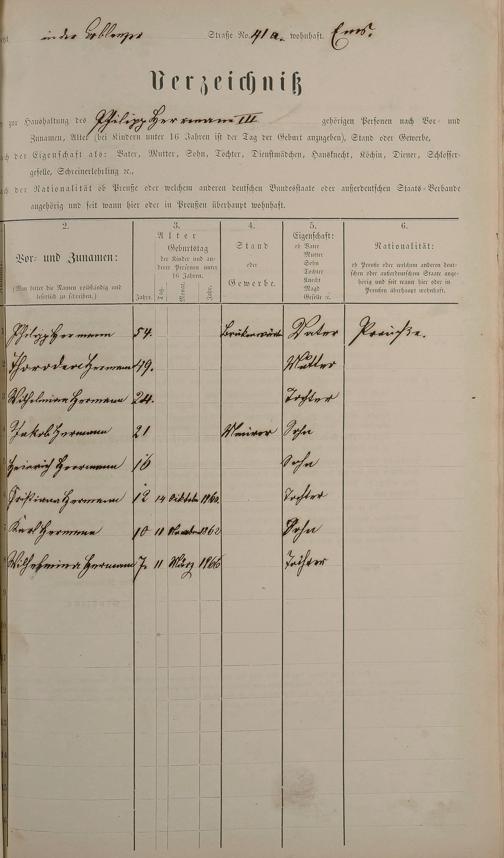 in der Coblenzer Straße No. 41 a. wohnhaft. Ems.
Verzeichniß
zur Haushaltung des Philipp Hermann III gehörigen Personen nach Vor- und
Zunamen, Alter (bei Kindern unter 16 Jahren ist der Tag der Geburt anzugeben), Stand oder Gewerbe,
nach der Eigenschaft als: Vater, Mutter, Sohn, Tochter, Dienstmädchen, Hausknecht, Köchin, Diener, Schlosser-
geselle, Schreinerlehrling ꝛc.,
nach der Nationalität ob Preuße oder welchem anderen deutschen Bundesstaate oder außerdeutschen Staats-Verbande
angehörig und seit wann hier oder in Preußen überhaupt wohnhaft.
2.
Vor- und Zunamen:
(Man bittet die Namen vollständig und
leserlich zu schreiben.)
3.
Alter
Geburtstag
der Kinder und an-
derer Personen unter
16 Jahren.
Jahre. Tag. Monat. Jahr.
4.
Stand
oder
Gewerbe.
5.
Eigenschaft:
ob Vater
Mutter
Sohn
Tochter
Knecht
Magd
Geselle ꝛc.
6.
Nationalität:
ob Preuße oder welchem anderen deut-
schen oder außerdeutschen Staate ange-
hörig und seit wann hier oder in
Preußen überhaupt wohnhaft.
Philipp Hermann 54. Vater Preuße.
Hermann 49. Mutter
Wilhelmine Hermann 24. Tochter
Jakob Hermann 21 Maurer Sohn
Heinrich Herrmann 16 Sohn
Christiana Hermann 12 14 Oktober Tochter
Karl Hermann 10 11 1862 Sohn
Wilhelmina Hermann 7. 11 März 1866 Tochter